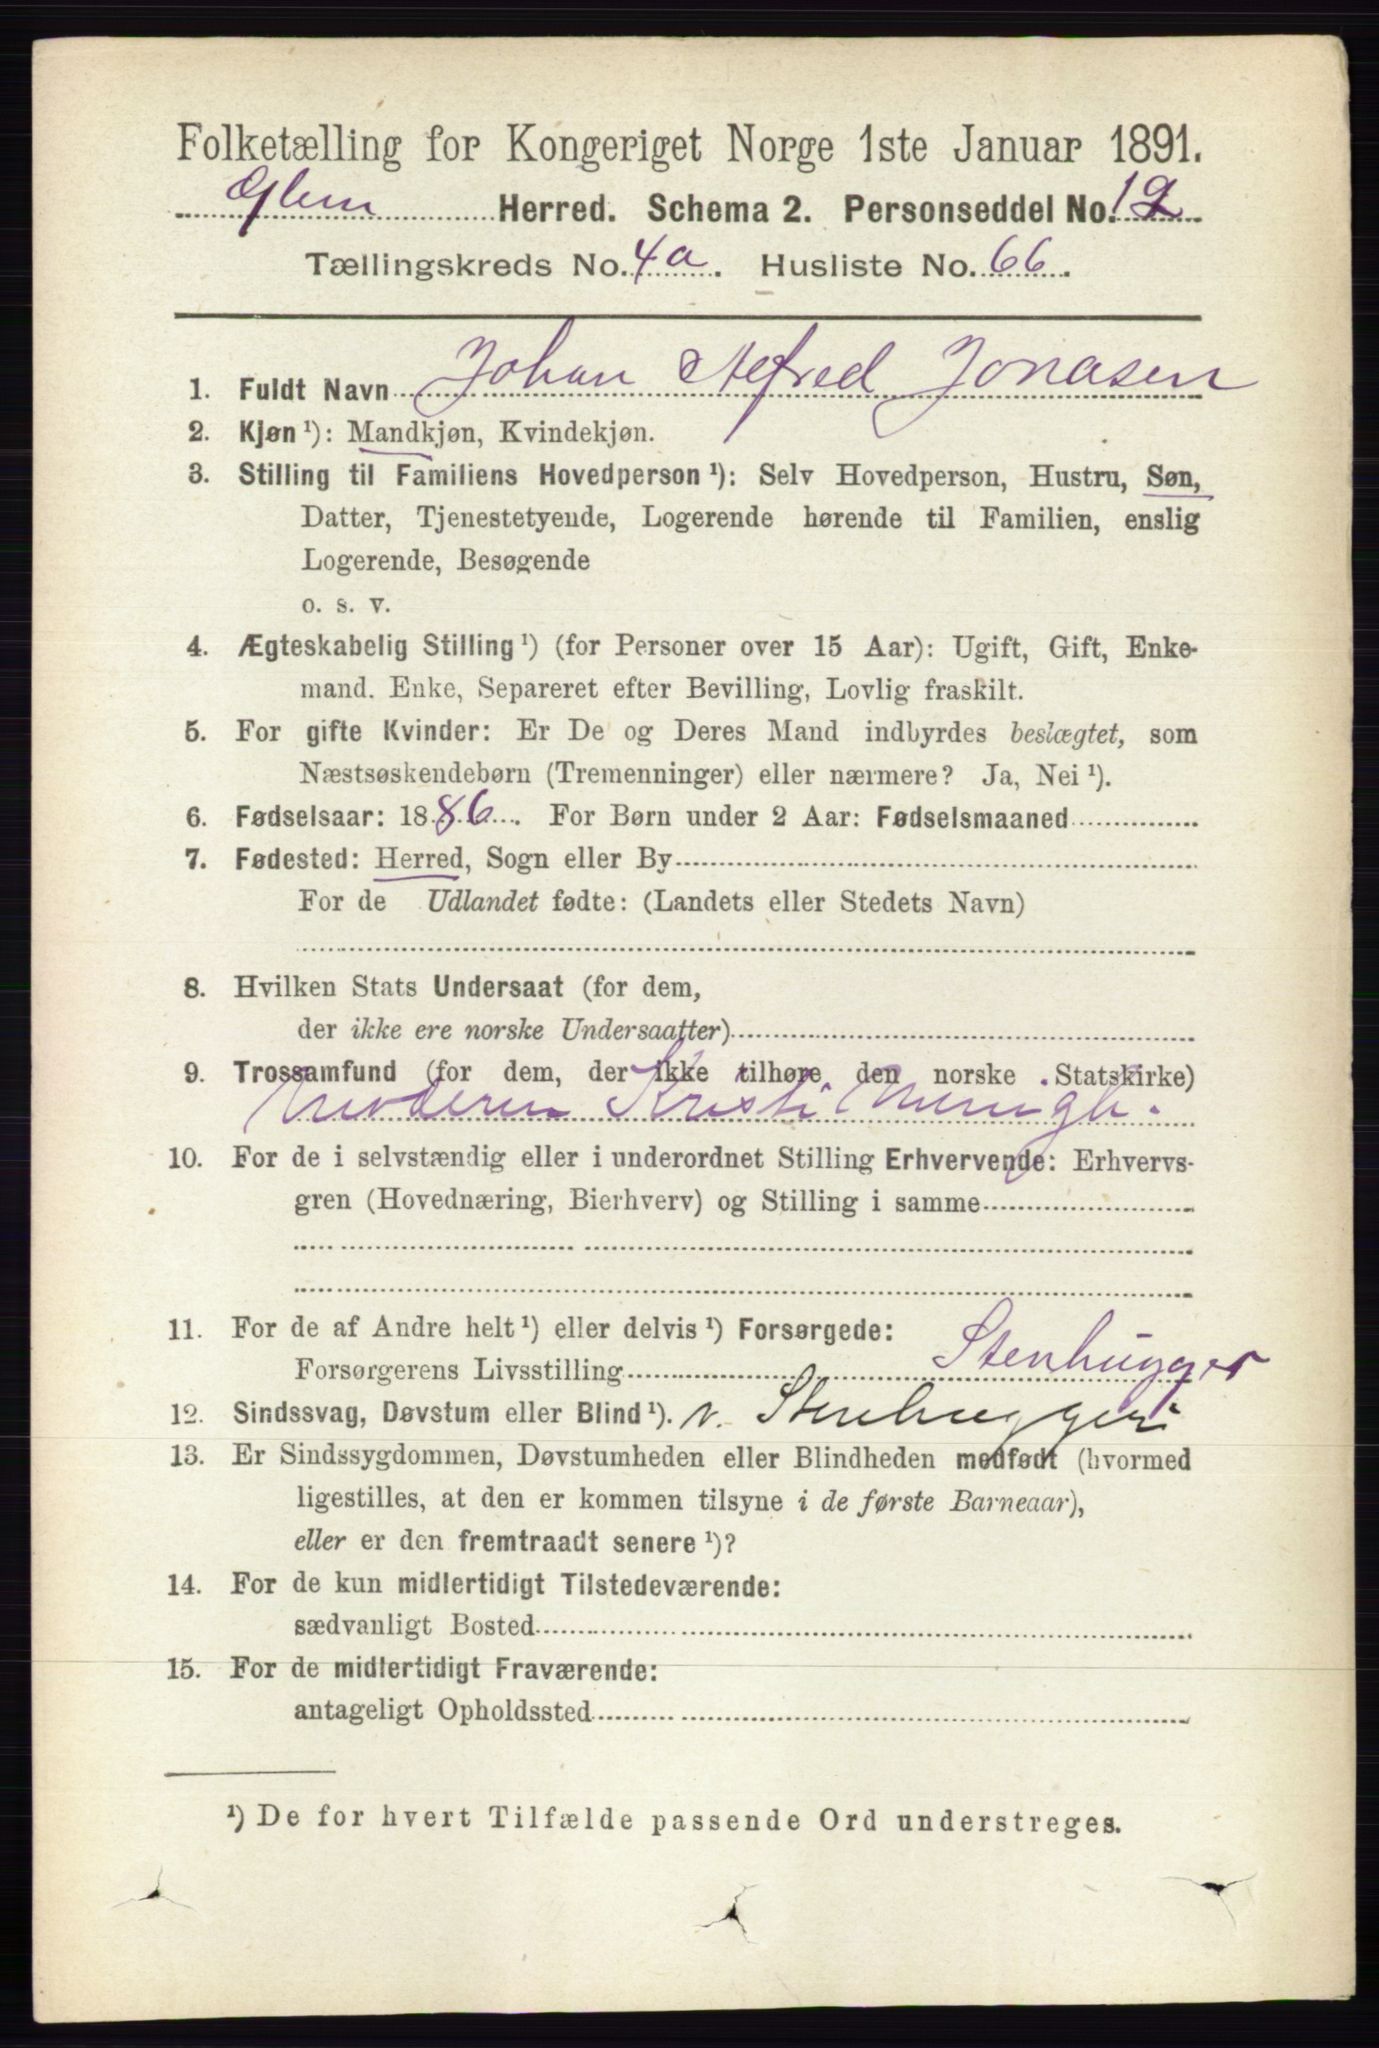 Folketælling for Kongeriget Norge 1ste Januar 1891.
Glem Herred. Schema 2. Personseddel No. 12
Tællingskreds No. 4a. Husliste No. 66.
1. Fuldt Navn Johan Alfred Jonasen
2. Kjøn ¹): Mandkjøn, Kvindekjøn.
3. Stilling til Familiens Hovedperson ¹): Selv Hovedperson, Hustru, Søn,
Datter, Tjenestetyende, Logerende hørende til Familien, enslig
Logerende, Besøgende
o. s. v.
4. Ægteskabelig Stilling ¹) (for Personer over 15 Aar): Ugift, Gift, Enke-
mand. Enke, Separeret efter Bevilling, Lovlig fraskilt.
5. For gifte Kvinder: Er De og Deres Mand indbyrdes beslægtet, som
Næstsøskendebørn (Tremenninger) eller nærmere? Ja, Nei ¹).
6. Fødselsaar: 1886. For Børn under 2 Aar: Fødselsmaaned
7. Fødested: Herred, Sogn eller By
For de Udlandet fødte: (Landets eller Stedets Navn)
8. Hvilken Stats Undersaat (for dem,
der ikke ere norske Undersaatter)
9. Trossamfund (for dem, der ikke tilhøre den norske Statskirke)
Kristi
10. For de i selvstændig eller i underordnet Stilling Erhvervende: Erhvervs-
gren (Hovednæring, Bierhverv) og Stilling i samme
11. For de af Andre helt ¹) eller delvis ¹) Forsørgede:
Forsørgerens Livsstilling Stenhugger
12. Sindssvag, Døvstum eller Blind ¹). v. Stenhuggeri
13. Er Sindssygdommen, Døvstumheden eller Blindheden medfødt (hvormed
ligestilles, at den er kommen tilsyne i de første Barneaar),
eller er den fremtraadt senere ¹)?
14. For de kun midlertidigt Tilstedeværende:
sædvanligt Bosted
15. For de midlertidigt Fraværende:
antageligt Opholdssted
¹) De for hvert Tilfælde passende Ord understreges.